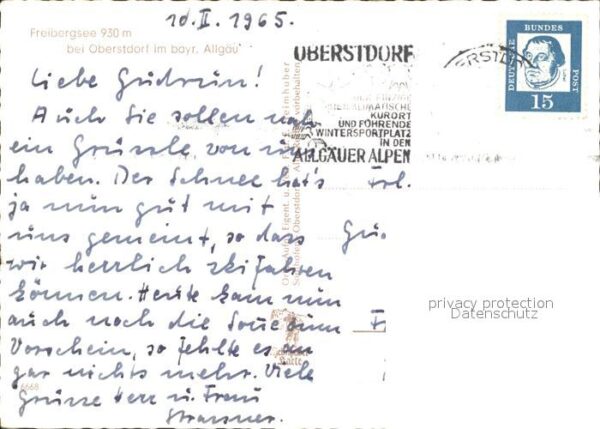 10.II.1965.
Freibergsee 930 m
bei Oberstdorf im bayr. Allgäu
Liebe Gudrun!
Auch Sie sollen mal
ein Grüssle von mir
haben. Der Schnee hat's
ja nun gut mit
uns gemeint, so dass
wir herrlich ski fahren
können. Heute kam nun
auch noch die Sonne zum
Vorschein, so fehlte es an
gar nichts mehr. Viele
Grüsse Herr u. Frau
Strassner.
6668
OBERSTDORF
KURORT
UND FÜHRENDE
WINTERSPORTPLATZ
IN DEN
ALLGÄUER ALPEN
ERSTDORF
DEUTSCHE BUNDES POST
15
Frl.
Gud
F
privacy protection
Datenschutz